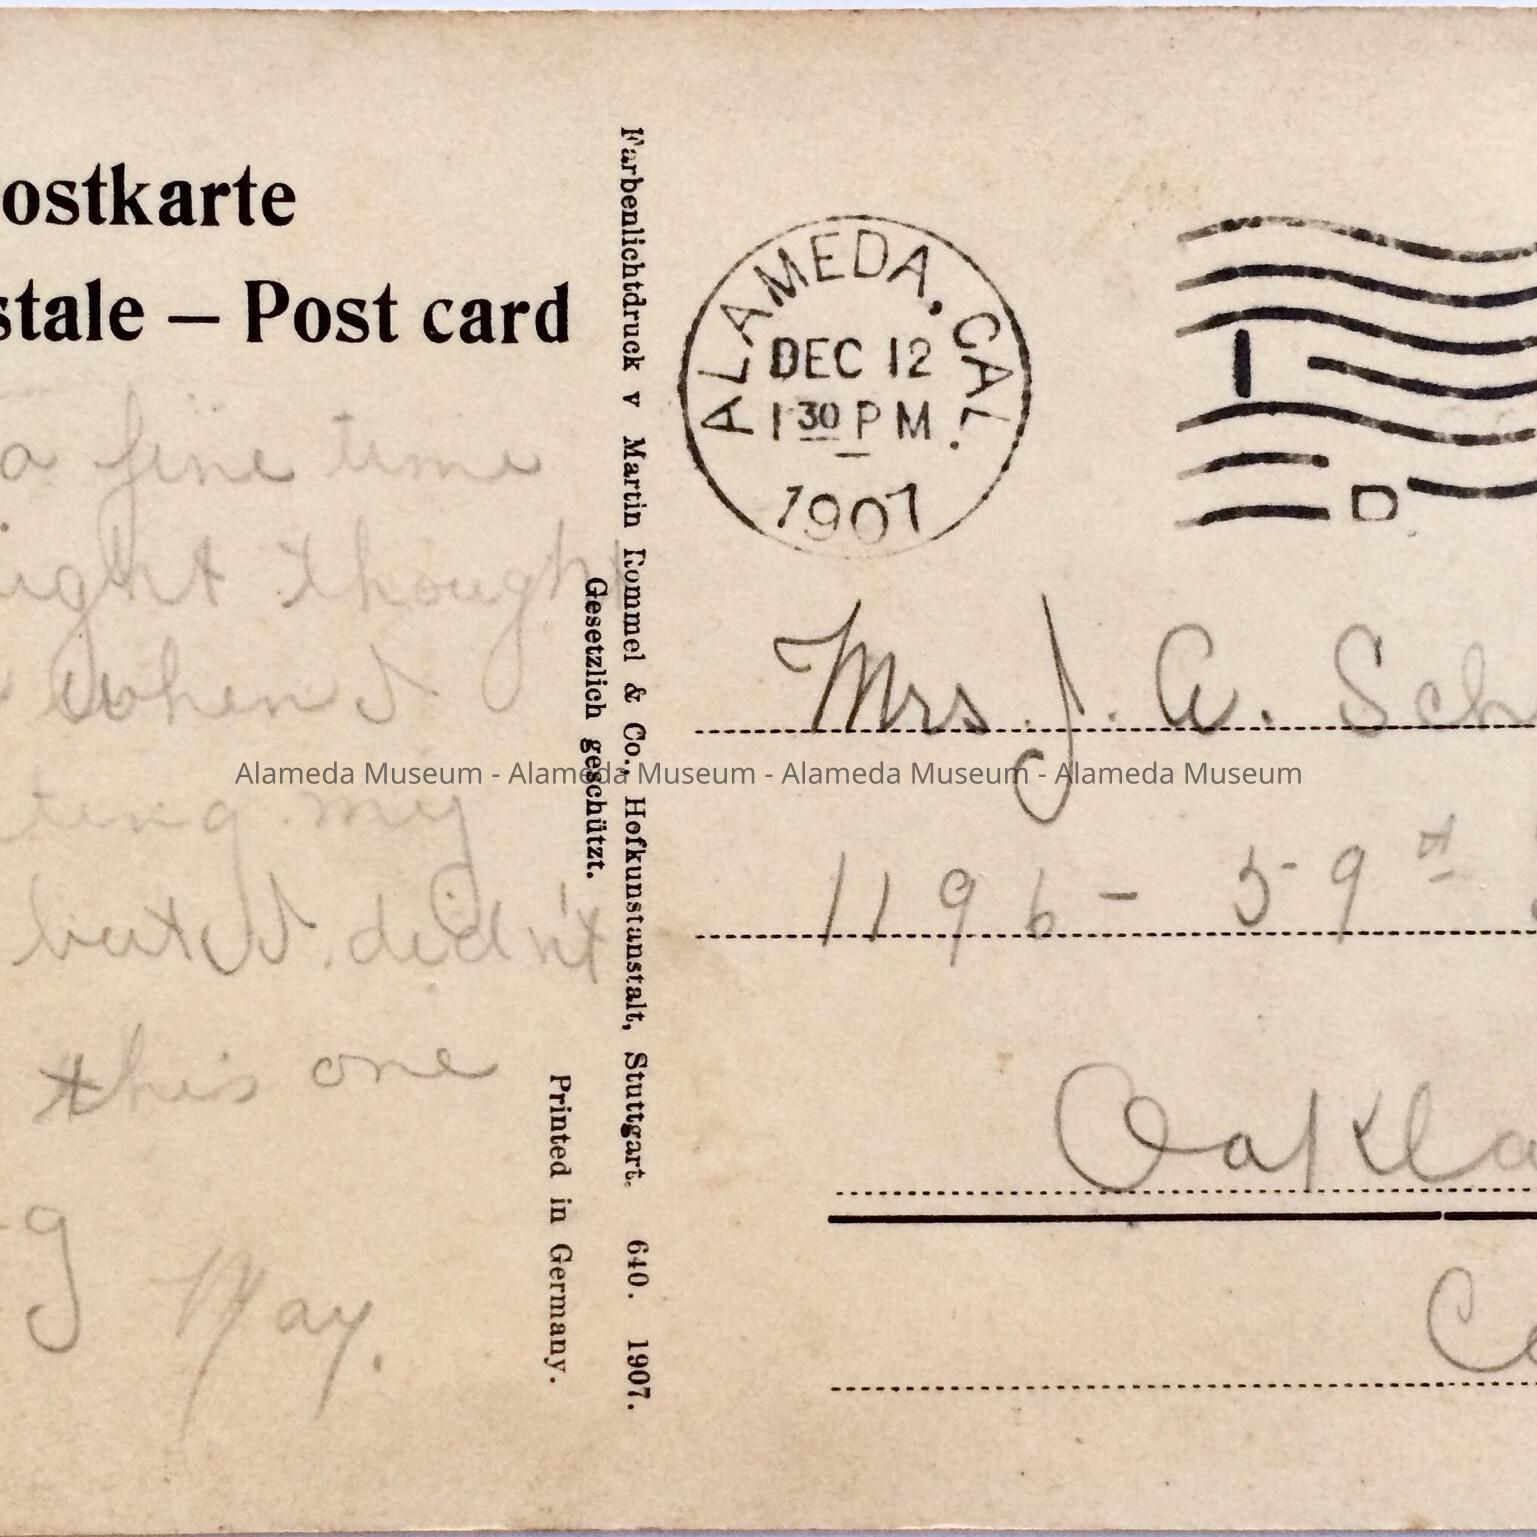 ostkarte
stale – Post card
a fine time
ight though
when I
ting my
but I didn't
this one
May.
Farbenlichtdruck v Martin Rommel & Co., Hofkunstanstalt, Stuttgart. 640. 1907.
Gesetzlich geschützt.
Printed in Germany.
ALAMEDA, CAL.
DEC 12
1 30 PM
1907
1
D
Mrs J. A. Sch
1196 - 59th
Oakla
Ca
Alameda Museum - Alameda Museum - Alameda Museum - Alameda Museum